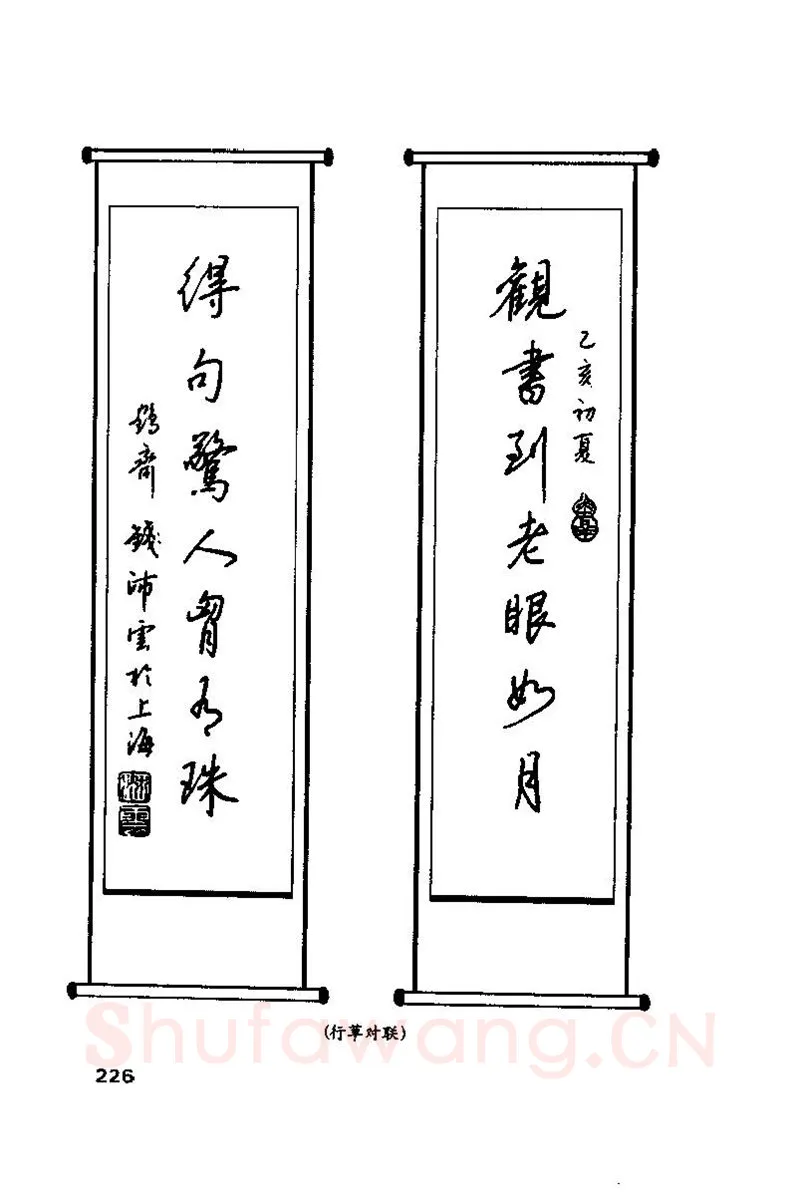 觀書到老眼如月
乙亥初夏
得句驚人胷有珠
鶴齋 錢沛雲於上海
沛雲
(行草对联)
Shufawang.CN
226